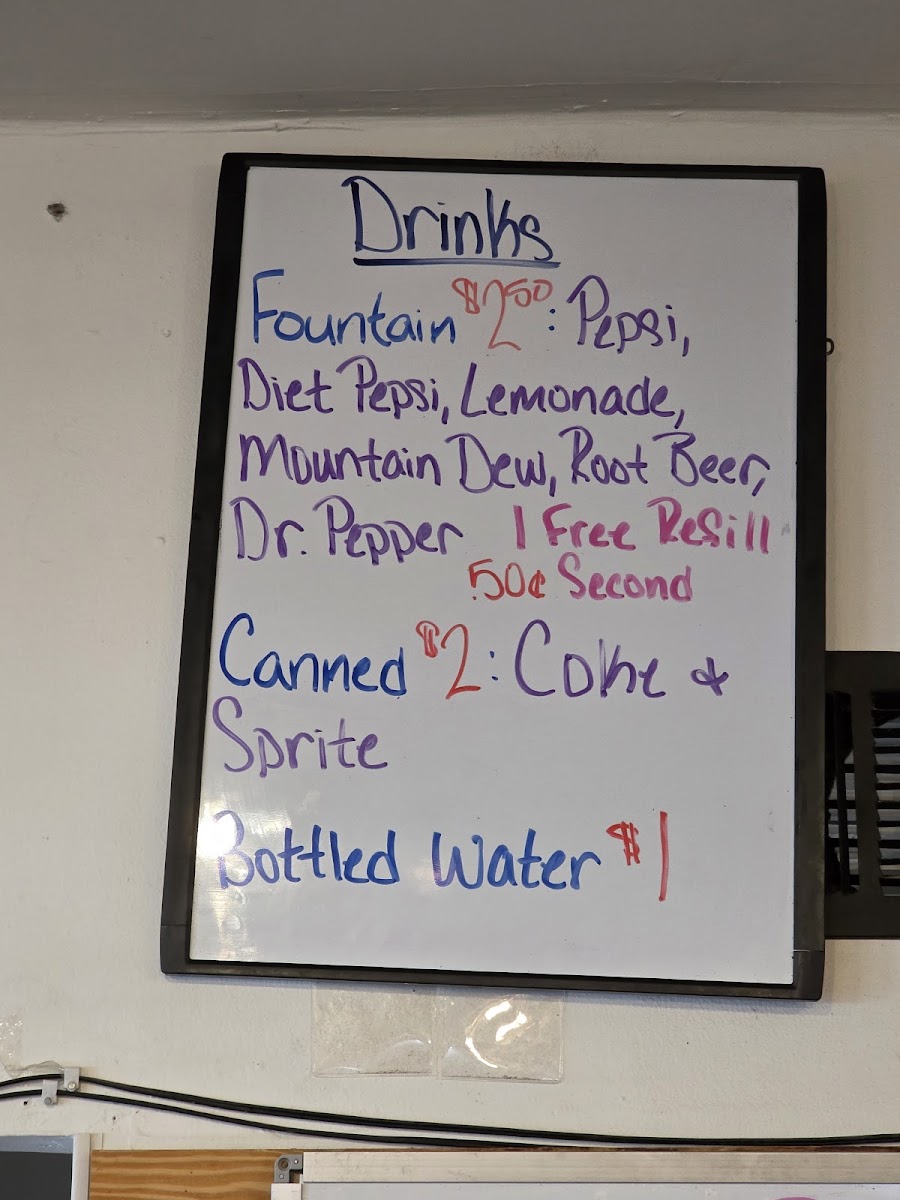 Drinks
Fountain $2.50: Pepsi,
Diet Pepsi, Lemonade,
Mountain Dew, Root Beer,
Dr. Pepper 1 Free Refill
.50¢ Second
Canned $2: Coke &
Sprite
Bottled Water $1